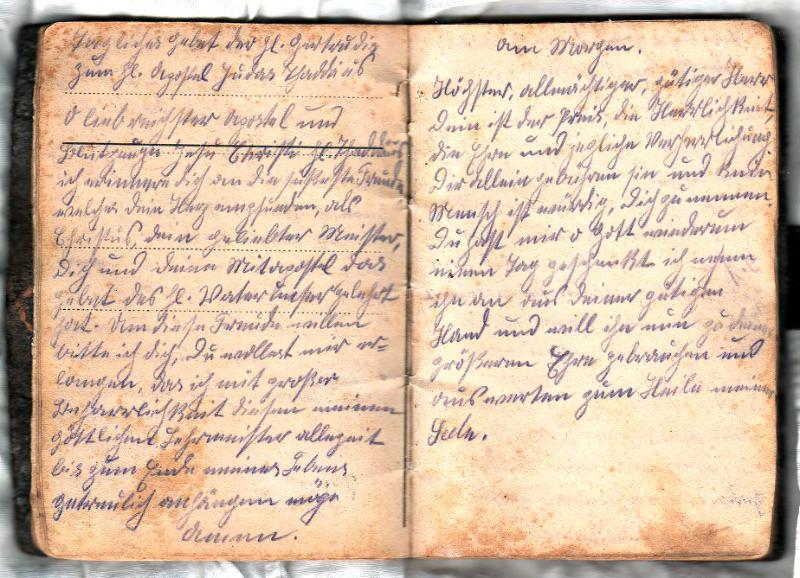 Tägliches Gebet der hl. Gertrudis
zum hl. Apostel Judas Thaddäus
O liebreichster Apostel und
Blutzeuge Jesu Christi hl. Thaddäus
ich erinnere dich an die süßeste Freude
welche dein Herz empfunden, als
Christus, dein geliebter Meister,
Dich und deine Mitapostel das
Gebet des hl. Vater Unser gelehrt
hat. Um diese Freude willen
bitte ich dich, Du wollest mir er-
langen, das ich mit großer
Beharrlichkeit diesen meinen
göttlichen Lehrmeister allezeit
bis zum Ende meines Lebens
getreulich anhängen möge
Amen.
Am Morgen.
Höchster, allmächtiger, gütiger Herr
Dein ist der Preis, die Herrlichkeit
die Ehre und jegliche Verherrlichung
Dir allein gebühren sie und kein
Mensch ist würdig, Dich zu nennen.
Du hast mir o Gott wiederum
einen Tag geschenkt ich nehme
ihn an aus deiner gütigen
Hand und will ihn nun zu deiner
größeren Ehre gebrauchen und
auswerten zum Heile meiner
Seele.